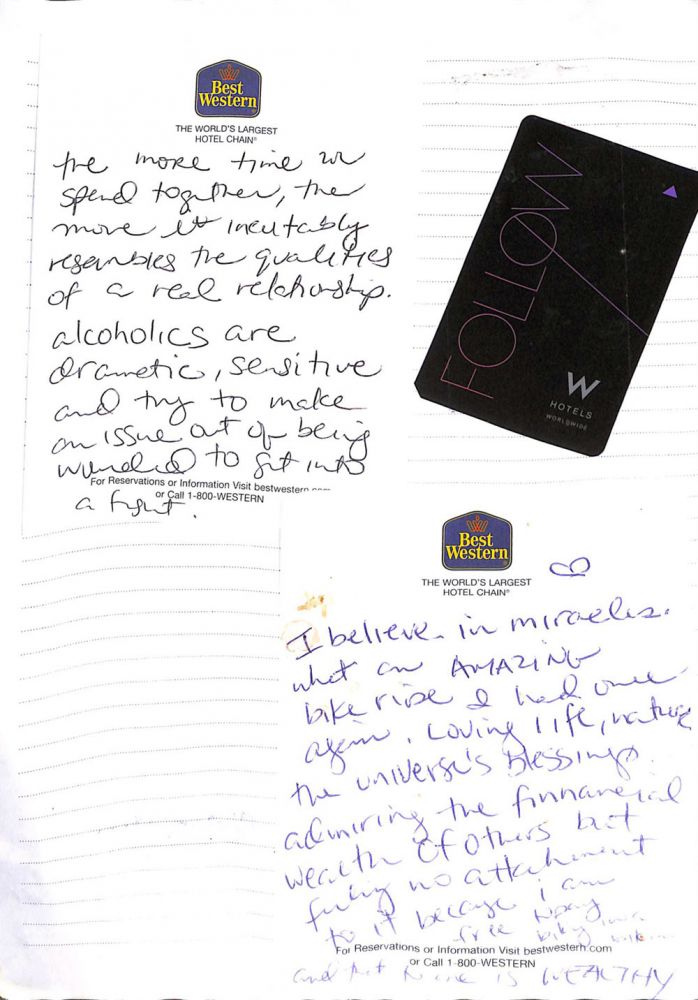 Best
Western
THE WORLD'S LARGEST
HOTEL CHAIN®
the more time we
spend together, the
more it inevitably
resembles the qualities
of a real relationship.
alcoholics are
dramatic, sensitive
and try to make
an issue out of being
wounded to get into
For Reservations or Information Visit bestwestern
or Call 1-800-WESTERN
a fight.
FOLLOW
W
HOTELS
WORLDWIDE
Best
Western
THE WORLD'S LARGEST
HOTEL CHAIN®
I believe in miracles.
what an AMAZING
bike ride I had once
again. Loving life, nature
the universe's blessings.
admiring the finnanencial
wealth of others but
feeling no attachment
to it because i am
free
biking
For Reservations or Information Visit bestwestern.com
or Call 1-800-WESTERN
and that to me is WEALTHY